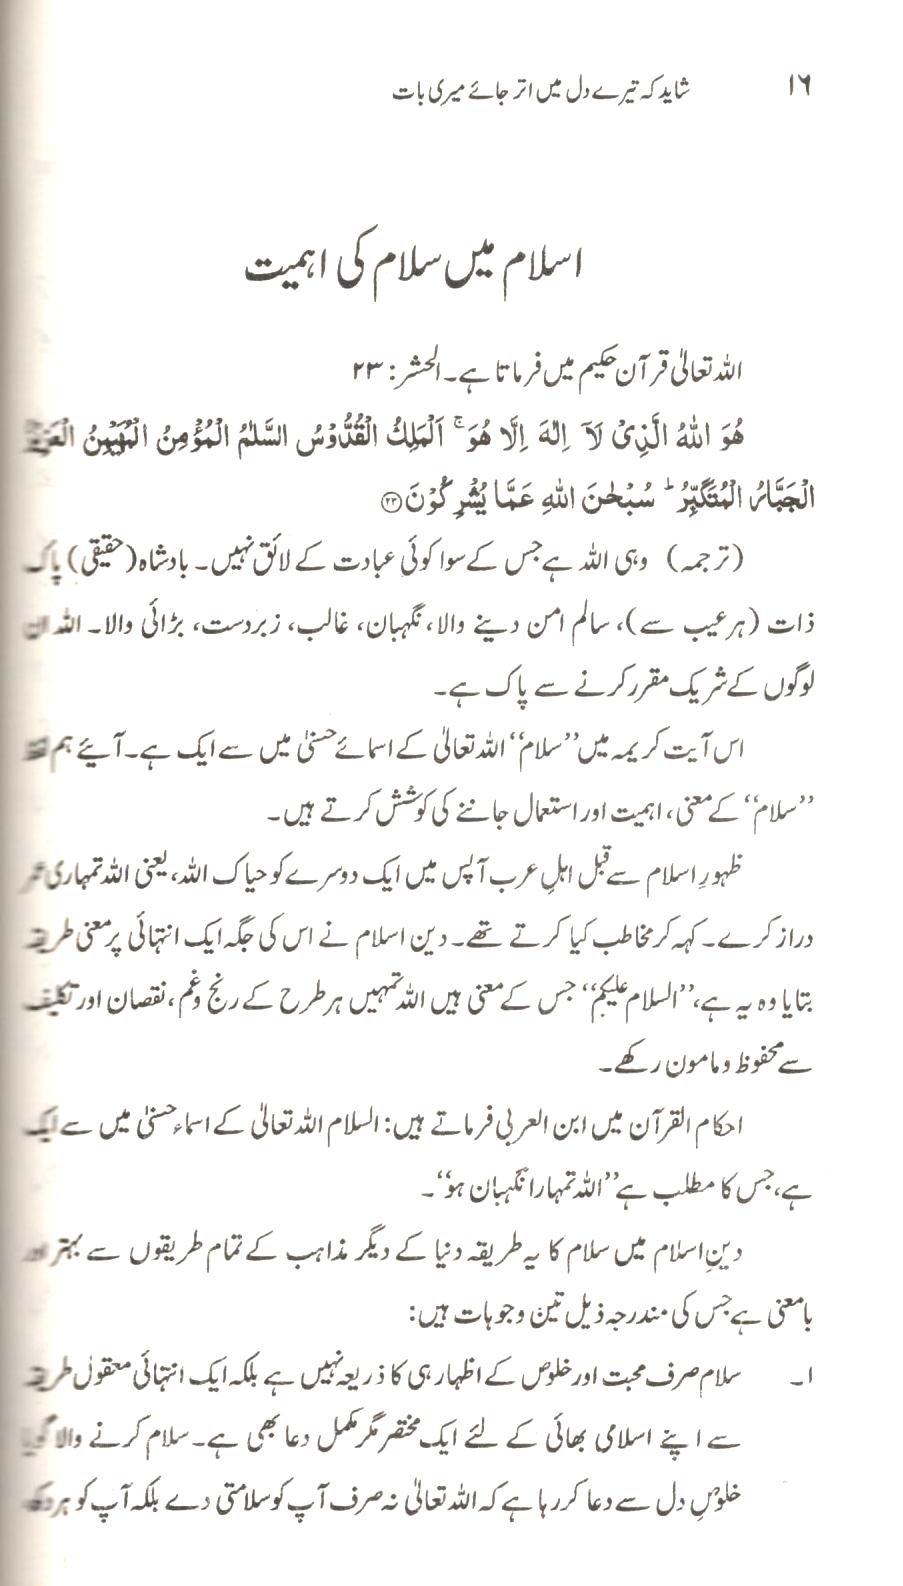 ۱۶ شاید کہ تیرے دل میں اتر جائے میری بات
اسلام میں سلام کی اہمیت
اللہ تعالیٰ قرآن حکیم میں فرماتا ہے۔ الحشر: ۲۳
هُوَ اللّٰهُ الَّذِیْ لَاۤ اِلٰهَ اِلَّا هُوَ ۚ اَلْمَلِكُ الْقُدُّوْسُ السَّلٰمُ الْمُؤْمِنُ الْمُهَیْمِنُ الْعَزِیْزُ
الْجَبَّارُ الْمُتَكَبِّرُ ؕ سُبْحٰنَ اللّٰهِ عَمَّا یُشْرِكُوْنَ ﴿۲۳﴾
(ترجمہ) وہی اللہ ہے جس کے سوا کوئی عبادت کے لائق نہیں۔ بادشاہ (حقیقی) پاک
ذات (ہر عیب سے)، سالم امن دینے والا، نگہبان، غالب، زبردست، بڑائی والا۔ اللہ ان
لوگوں کے شریک مقرر کرنے سے پاک ہے۔
اس آیت کریمہ میں ”سلام“ اللہ تعالیٰ کے اسمائے حسنیٰ میں سے ایک ہے۔ آیئے ہم لفظ
”سلام“ کے معنی، اہمیت اور استعمال جاننے کی کوشش کرتے ہیں۔
ظہورِ اسلام سے قبل اہلِ عرب آپس میں ایک دوسرے کو حیاک اللہ، یعنی اللہ تمہاری عمر
دراز کرے۔ کہہ کر مخاطب کیا کرتے تھے۔ دین اسلام نے اس کی جگہ ایک انتہائی پُرمعنی طریقہ
بتایا وہ یہ ہے، ”السلام علیکم“ جس کے معنی ہیں اللہ تمہیں ہر طرح کے رنج وغم، نقصان اور تکلیف
سے محفوظ و مامون رکھے۔
احکام القرآن میں ابن العربی فرماتے ہیں: السلام اللہ تعالیٰ کے اسماء حسنیٰ میں سے ایک
ہے، جس کا مطلب ہے ”اللہ تمہارا نگہبان ہو“۔
دینِ اسلام میں سلام کا یہ طریقہ دنیا کے دیگر مذاہب کے تمام طریقوں سے بہتر اور
بامعنی ہے جس کی مندرجہ ذیل تین وجوہات ہیں:
۱۔ سلام صرف محبت اور خلوص کے اظہار ہی کا ذریعہ نہیں ہے بلکہ ایک انتہائی معقول طریقہ
سے اپنے اسلامی بھائی کے لئے ایک مختصر مگر مکمل دعا بھی ہے۔ سلام کرنے والا گویا
خلوصِ دل سے دعا کر رہا ہے کہ اللہ تعالیٰ نہ صرف آپ کو سلامتی دے بلکہ آپ کو ہر دکھ